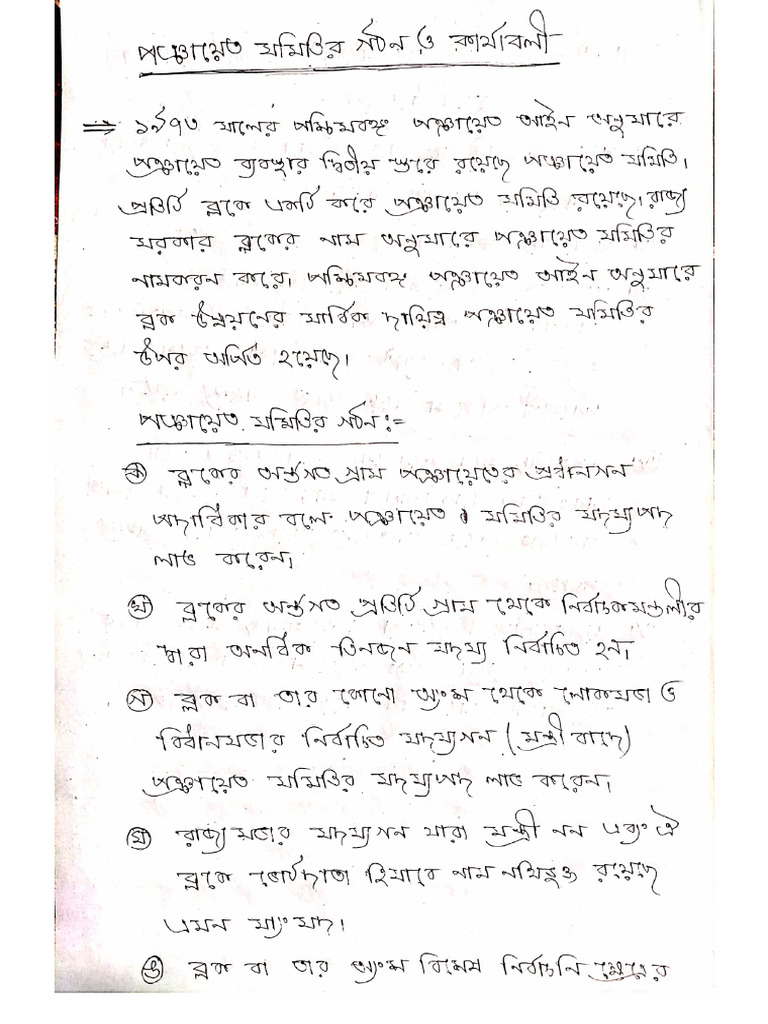 পঞ্চায়েত সমিতির গঠন ও কার্যাবলী
⇒ ১৯৭৩ সালের পশ্চিমবঙ্গ পঞ্চায়েত আইন অনুসারে
পঞ্চায়েত ব্যবস্থার দ্বিতীয় স্তরে রয়েছে পঞ্চায়েত সমিতি।
প্রতিটি ব্লকে একটি করে পঞ্চায়েত সমিতি রয়েছে। রাজ্য
সরকার ব্লকের নাম অনুসারে পঞ্চায়েত সমিতির
নামকরন করে। পশ্চিমবঙ্গ পঞ্চায়েত আইন অনুসারে
ব্লক উন্নয়নের সার্বিক দায়িত্ব পঞ্চায়েত সমিতির
উপর অর্পিত হয়েছে।
পঞ্চায়েত সমিতির গঠন :=
ক ব্লকের অর্ন্তগত গ্রাম পঞ্চায়েতের প্রধানগন
পদাধিকার বলে পঞ্চায়েত সমিতির সদস্যপদ
লাভ করেন।
খ ব্লকের অর্ন্তগত প্রতিটি গ্রাম থেকে নির্বাচকমন্ডলীর
দ্বারা অনধিক তিনজন সদস্য নির্বাচিত হন।
গ ব্লক বা তার কোনো অংশ থেকে লোকসভা ও
বিধানসভার নির্বাচিত সদস্যগন (মন্ত্রী বাদে)
পঞ্চায়েত সমিতির সদস্যপদ লাভ করেন।
ঘ রাজ্যসভার সদস্যগন যারা মন্ত্রী নন এবং ঐ
ব্লকে ভোটদাতা হিসাবে নাম নথিভুক্ত রয়েছে
এমন সাংসদ।
ঙ ব্লক বা তার অংশ বিশেষ নির্বাচনি ক্ষেত্রের